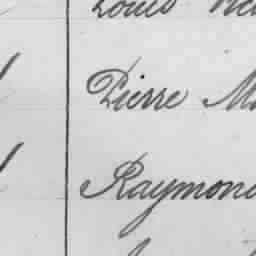 Louis
Pierre
Raymond